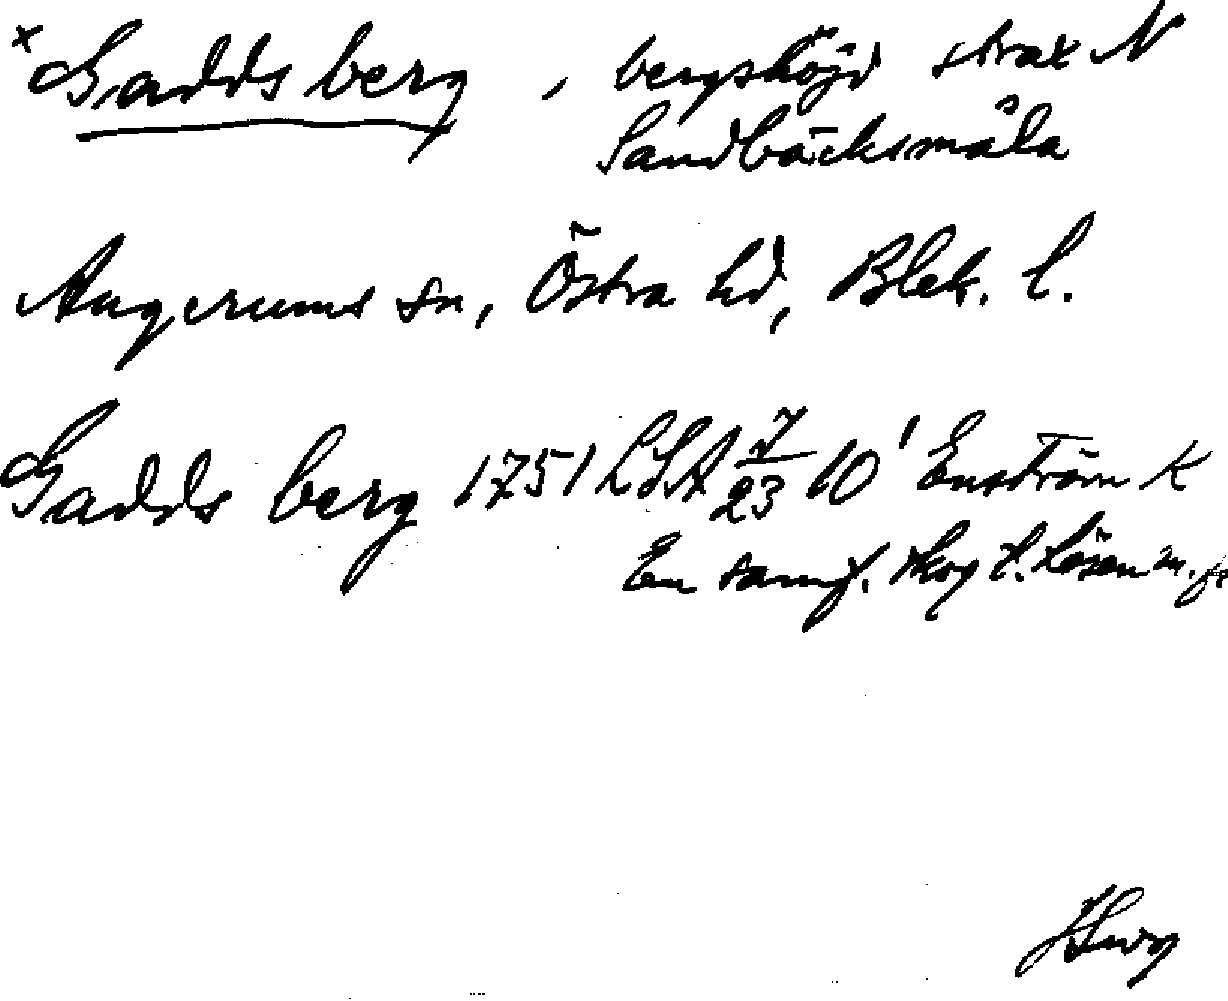 x Gadds berg, bergshöjd strax N
Sandbäcksmåla
Augerums sn, Östra hd, Blek. l.
Gadds berg 1751 LSA 7/23 10' Enström K
En samf. skog t. Lösen m. fl.